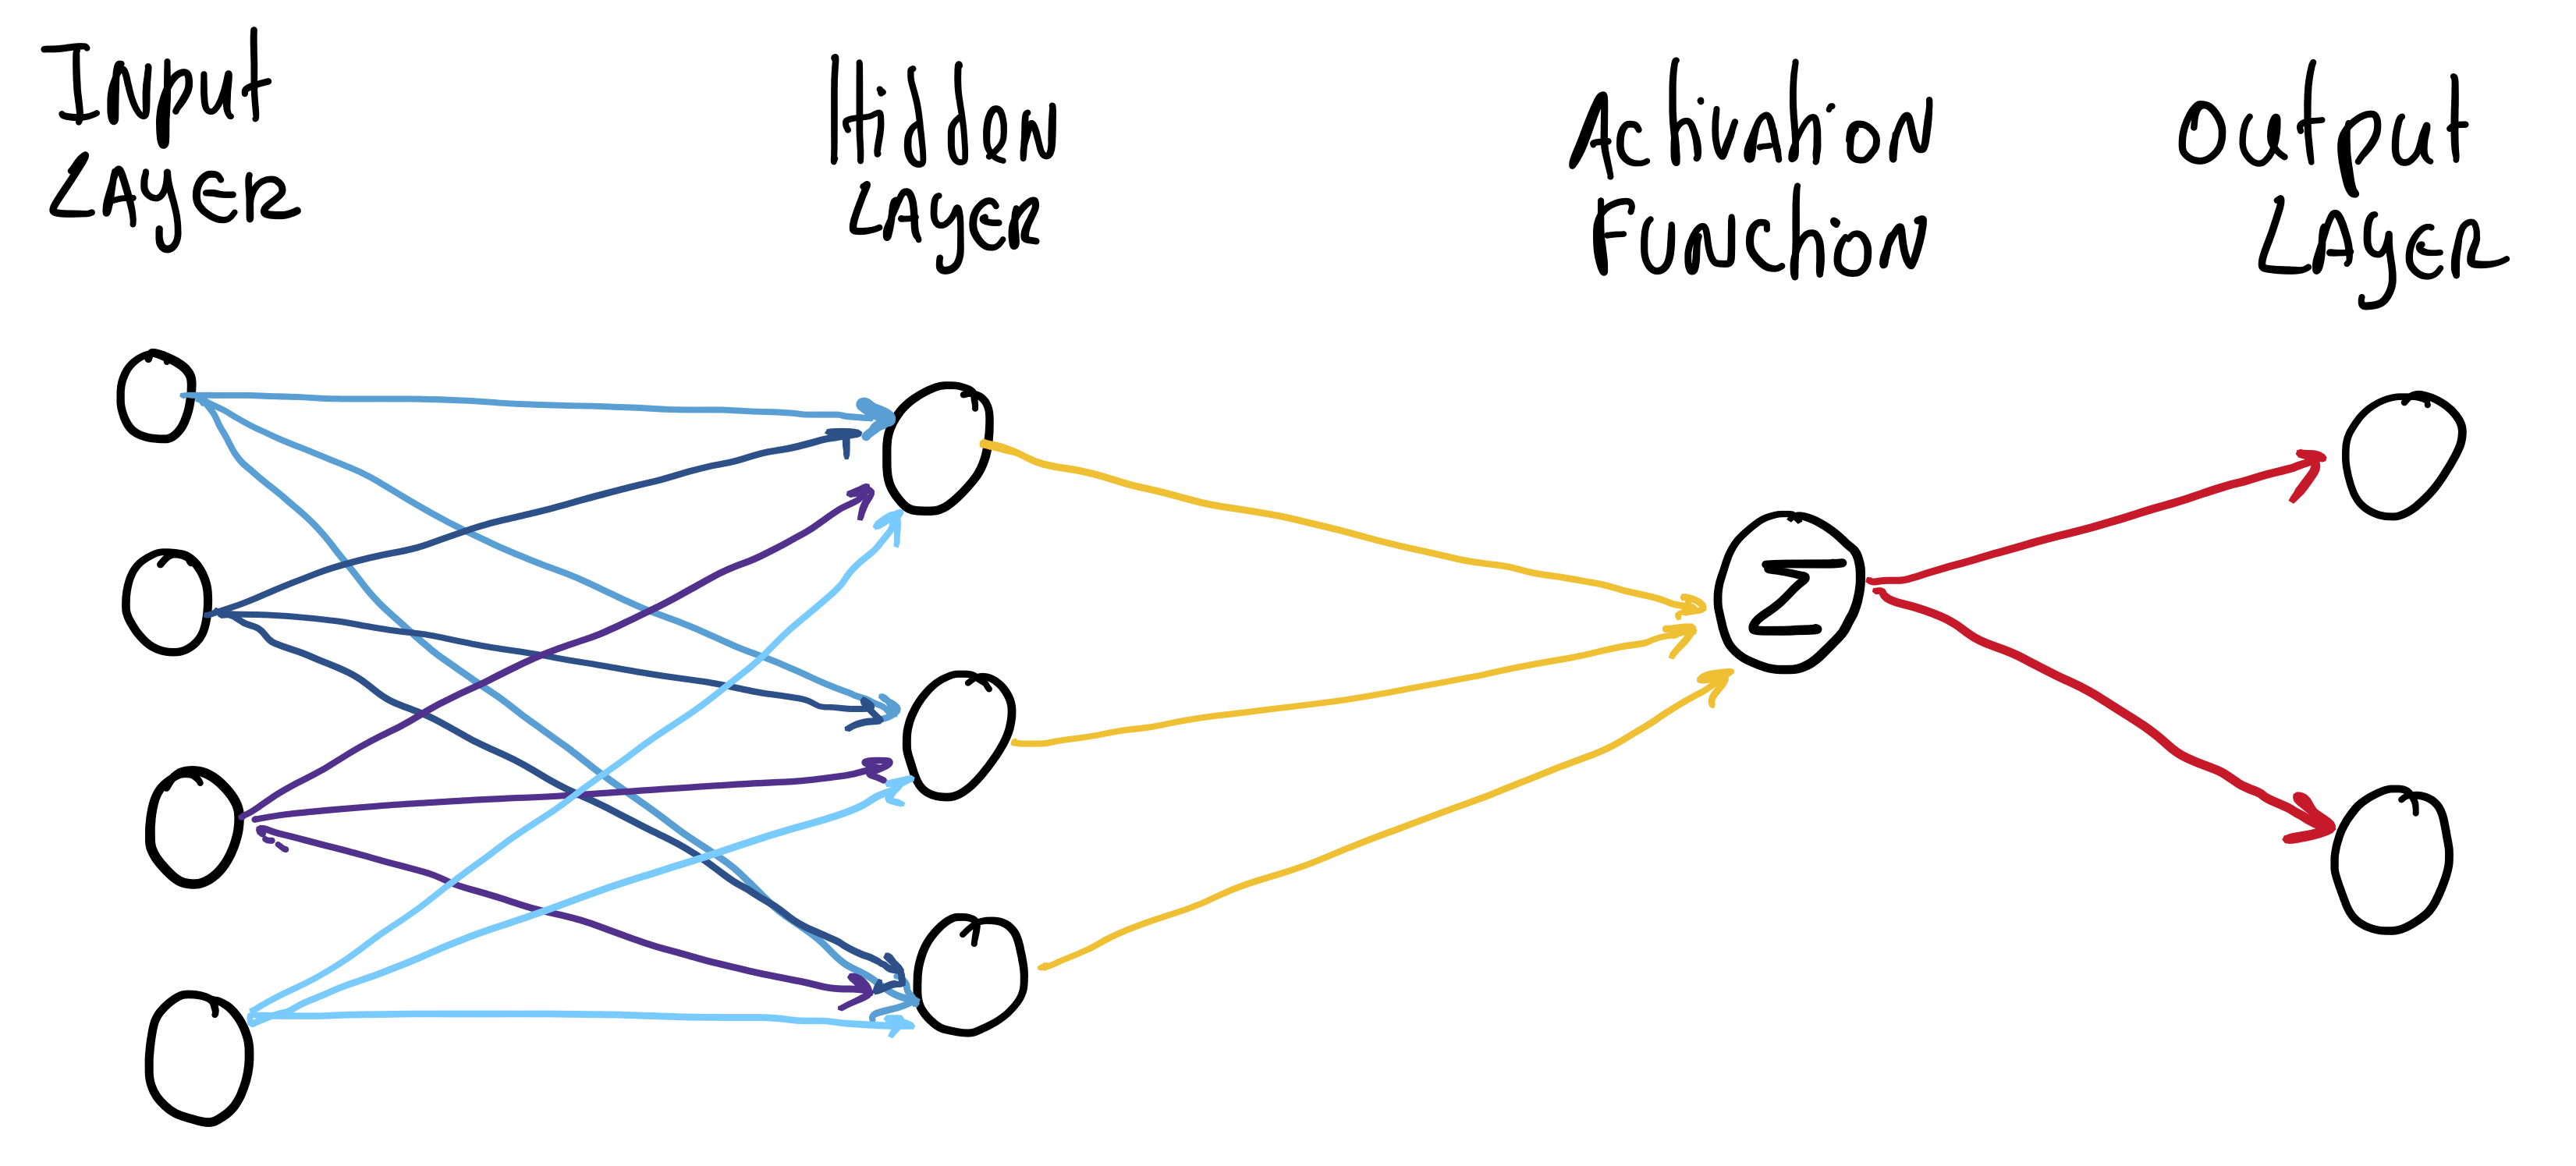 Input
Layer
Hidden
Layer
Activation
Function
Output
Layer
Σ